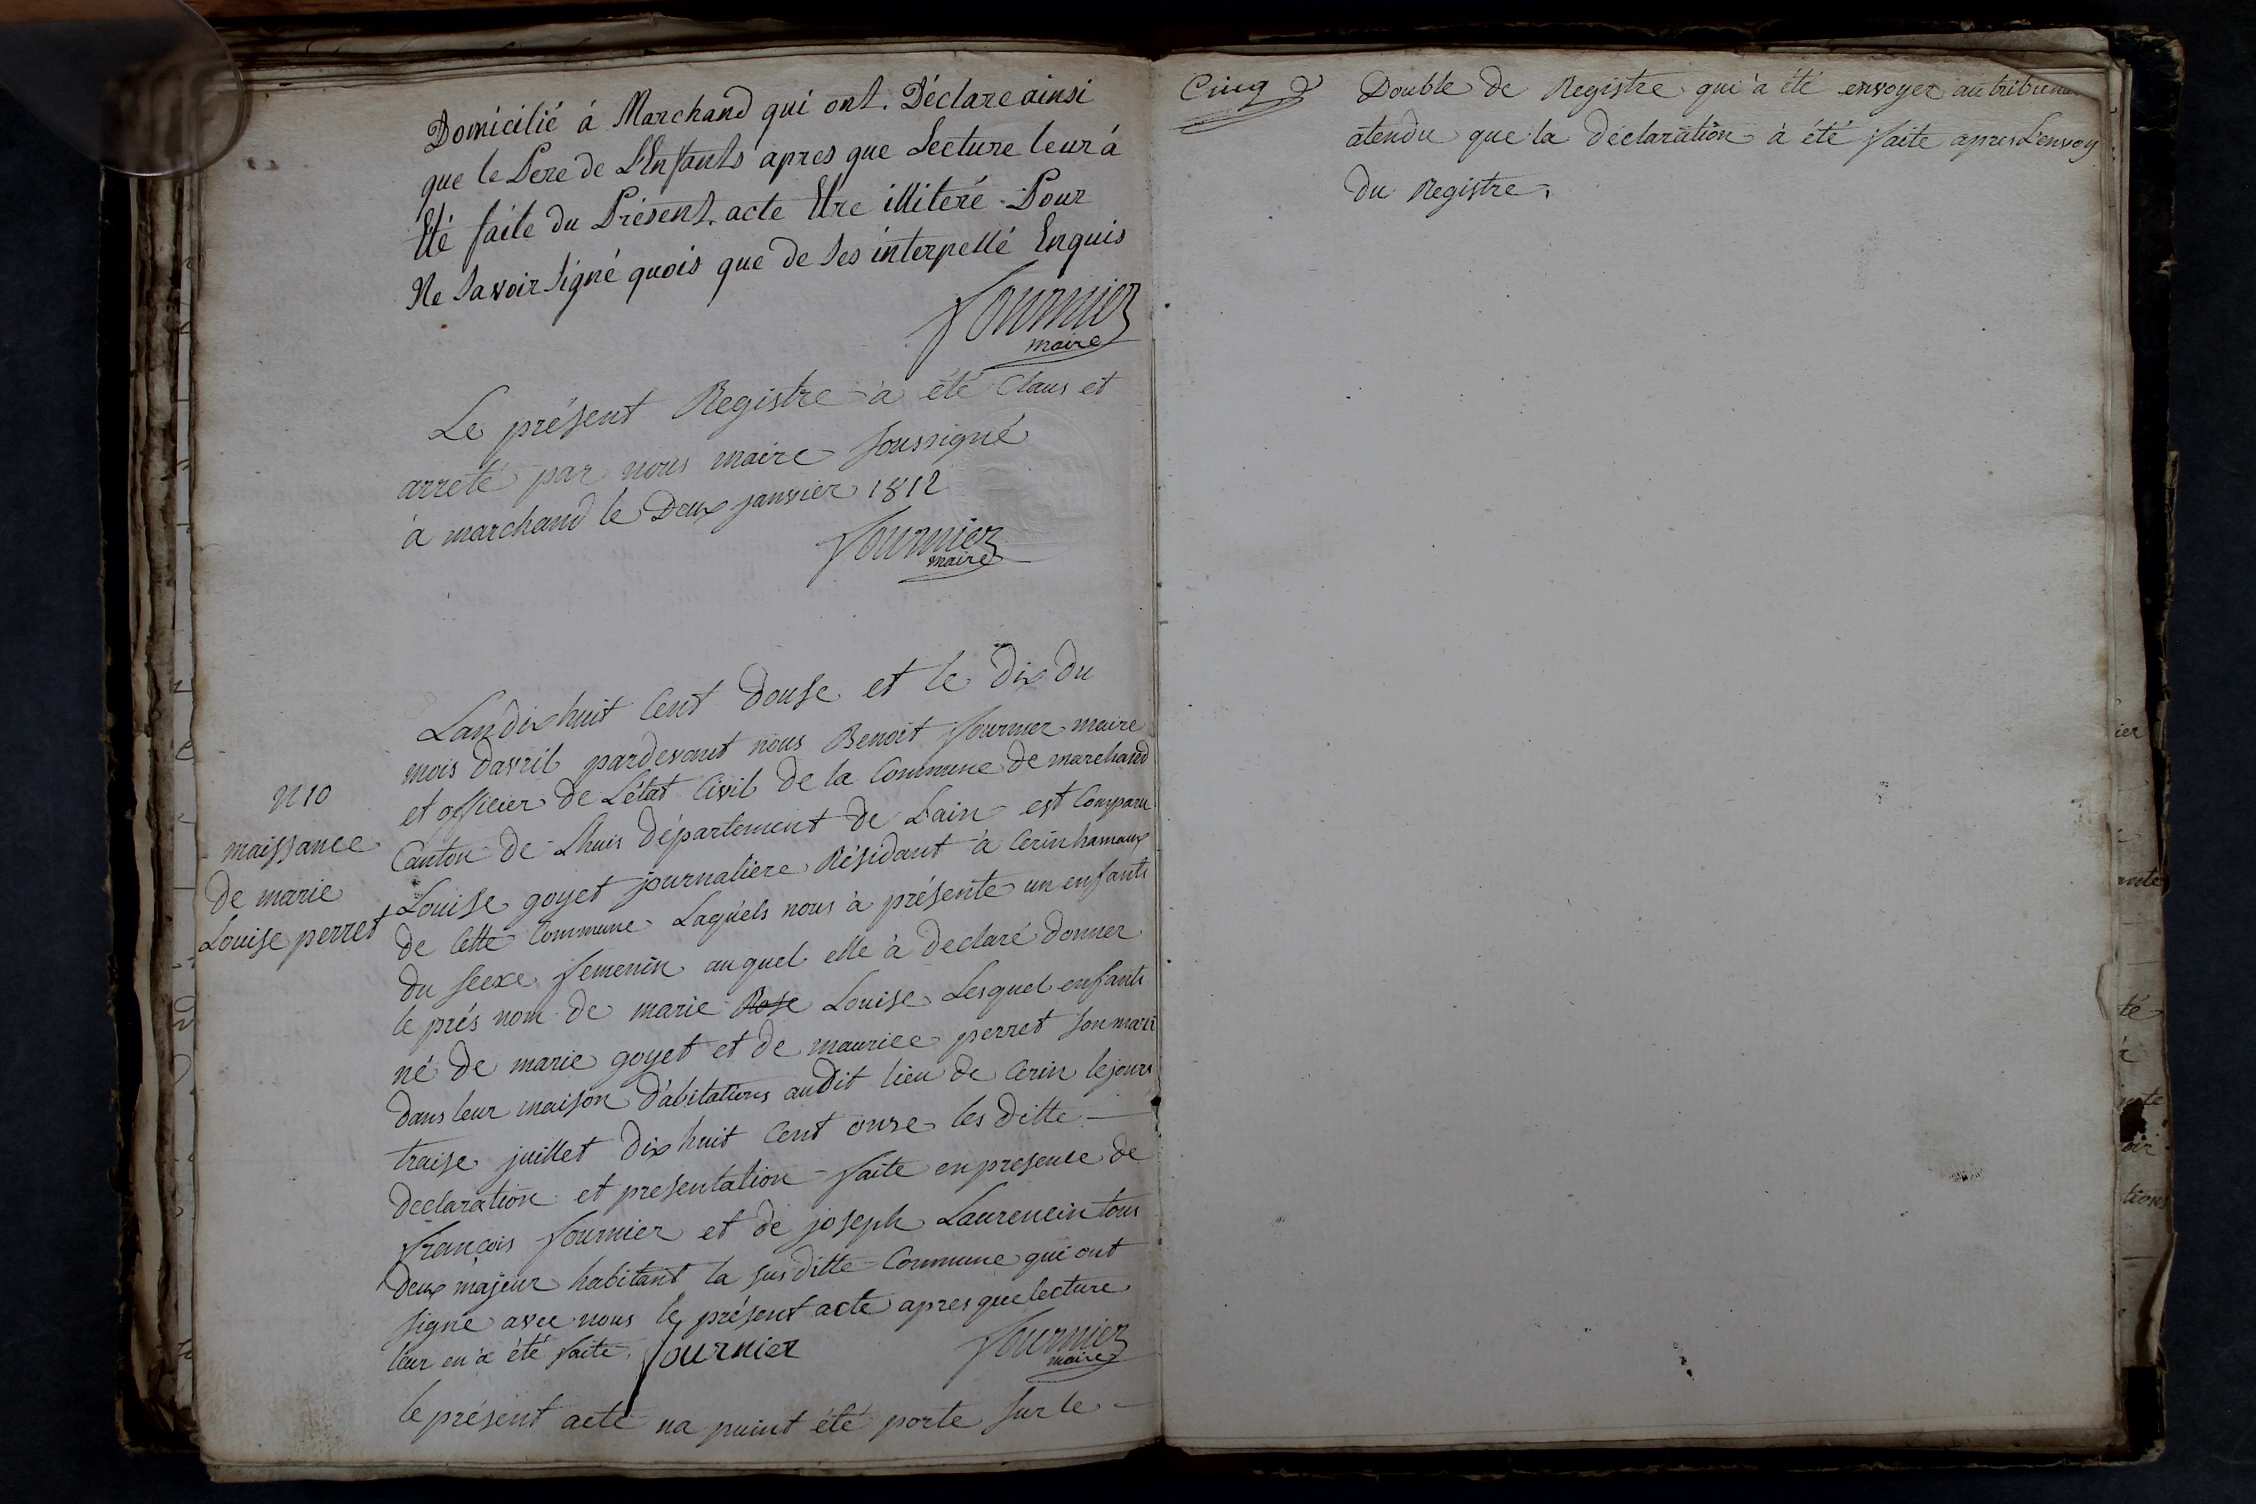 Domicilié á Marchand qui ont. Déclare ainsi
que le Pere de L'Enfants apres que Lecture leur á
Eté faite du Présent. acte Etre illiteré. Pour
Ne Savoir Signé quois que de Ses interpellé Enquis
fournier
maire
Le présent Registre à été Claus et
arreté par nous maire soussigné
à marchand le Deux janvier 1812
fournier
maire
Landix huit Cent douse et le dix du
mois davril pardevant nous Benoit fournier maire
et officier de L'état Civil de la Commune de marchand
Canton de Lhuis département de Lain est Comparu
Louise goyet journaliere Résidant à Cerin hamaux
de Cette Commune Laquels nous à présente un enfants
du seexe femenin auquel elle à declaré donner
le prés nom de marie Rose Louise Lesquel enfants
né de marie goyet et de maurice perret son mari
dans leur maison d'abitations audit lieu de Cerin lejours
traise juillet dix huit Cent onse les ditte
declaration et presentation faite en presence de
françois fournier et de joseph Laurencin tous
deux majeur habitant la sus ditte Commune qui ont
signe avec nous le présent acte apres que lecture
leur en à été faite. fournier
fournier
maire
le présent acte na point été porte sur le
N 10
naissance
de marie
Louise perret
Cinq
Double de Registre qui à été envoyer au tribunal
atendu que la déclaration à été faite apres L'envoy
du Registre.